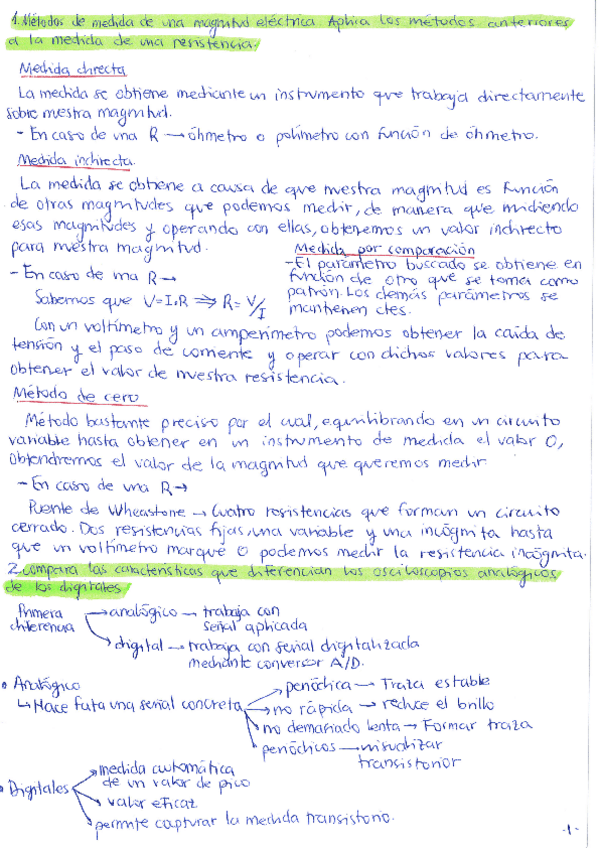 1. Métodos de medida de una magnitud eléctrica. Aplica los métodos anteriores
a la medida de una resistencia.
Medida directa
La medida se obtiene mediante un instrumento que trabaja directamente
sobre nuestra magnitud.
- En caso de una R → óhmetro o polímetro con función de óhmetro.
Medida indirecta.
La medida se obtiene a causa de que nuestra magnitud es función
de otras magnitudes que podemos medir, de manera que midiendo
esas magnitudes y operando con ellas, obtenemos un valor indirecto
para nuestra magnitud.
- En caso de una R →
Sabemos que V=I·R ⇒ R=V/I
Medida por comparación
- El parámetro buscado se obtiene en
función de otro que se toma como
patrón. Los demás parámetros se
mantienen ctes.
Con un voltímetro y un amperímetro podemos obtener la caída de
tensión y el paso de corriente y operar con dichos valores para
obtener el valor de nuestra resistencia.
Método de cero
Método bastante preciso por el cual, equilibrando en un circuito
variable hasta obtener en un instrumento de medida el valor 0,
obtendremos el valor de la magnitud que queremos medir
- En caso de una R →
Puente de Wheastone → Cuatro resistencias que forman un circuito
cerrado. Dos resistencias fijas, una variable y una incógnita hasta
que un voltímetro marque 0 podemos medir la resistencia incógnita.
2. Compara las características que diferencian los osciloscopios analógicos
de los digitales
Primera
diferencia
→ analógico → trabaja con
señal aplicada
→ digital → trabaja con señal digitalizada
mediante conversor A/D.
• Analógico
↳ Hace falta una señal concreta
periódica → Traza estable
no rápida → reduce el brillo
no demasiado lenta → Formar traza
periódicos → visualizar
transistorior
• Digitales
medida automática
de un valor de pico
valor eficaz
permite capturar la medida transistorio.
-1-